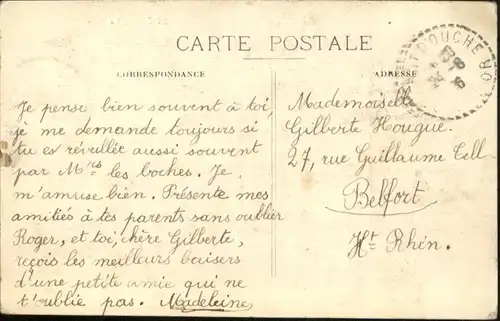 CARTE POSTALE
CORRESPONDANCE
Je pense bien souvent à toi,
je me demande toujours si
tu es réveillée aussi souvent
par Mrs les boches. Je
m'amuse bien. Présente mes
amitiés à tes parents sans oublier
Roger, et toi, chère Gilberte,
reçois les meilleurs baisers
d'une petite amie qui ne
t'oublie pas. Madeleine
ADRESSE
Mademoiselle
Gilberte Hougue.
27, rue Guillaume Tell
Belfort
Ht Rhin.
D'OUCHE
OR